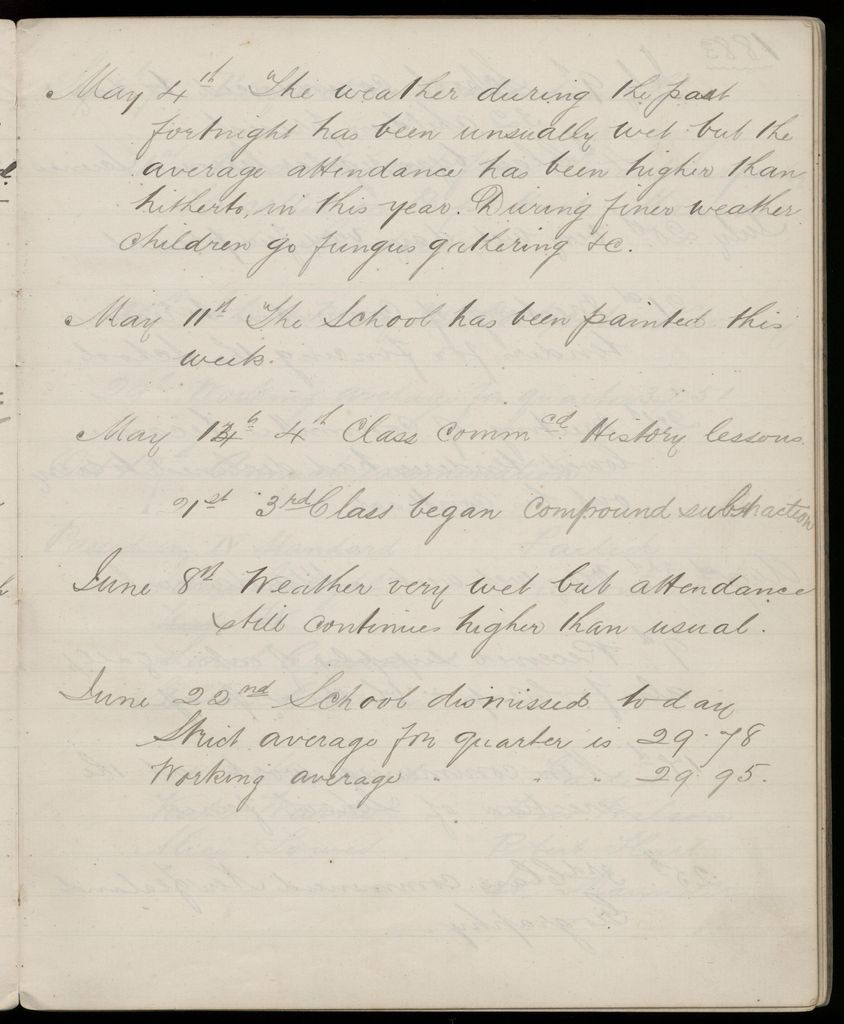 May 4th The weather during the past
fortnight has been unusually wet but the
average attendance has been higher than
hitherto, in this year. During finer weather
children go fungus gathering &c.
May 11th The School has been painted this
week.
May 14th 4th Class commcd History lessons.
21st 3rd Class began compound substraction
June 8th Weather very wet but attendance
still continues higher than usual.
June 22nd School dismissed today
Strict average for quarter is 29.78
Working average " " " 29.95.
1883